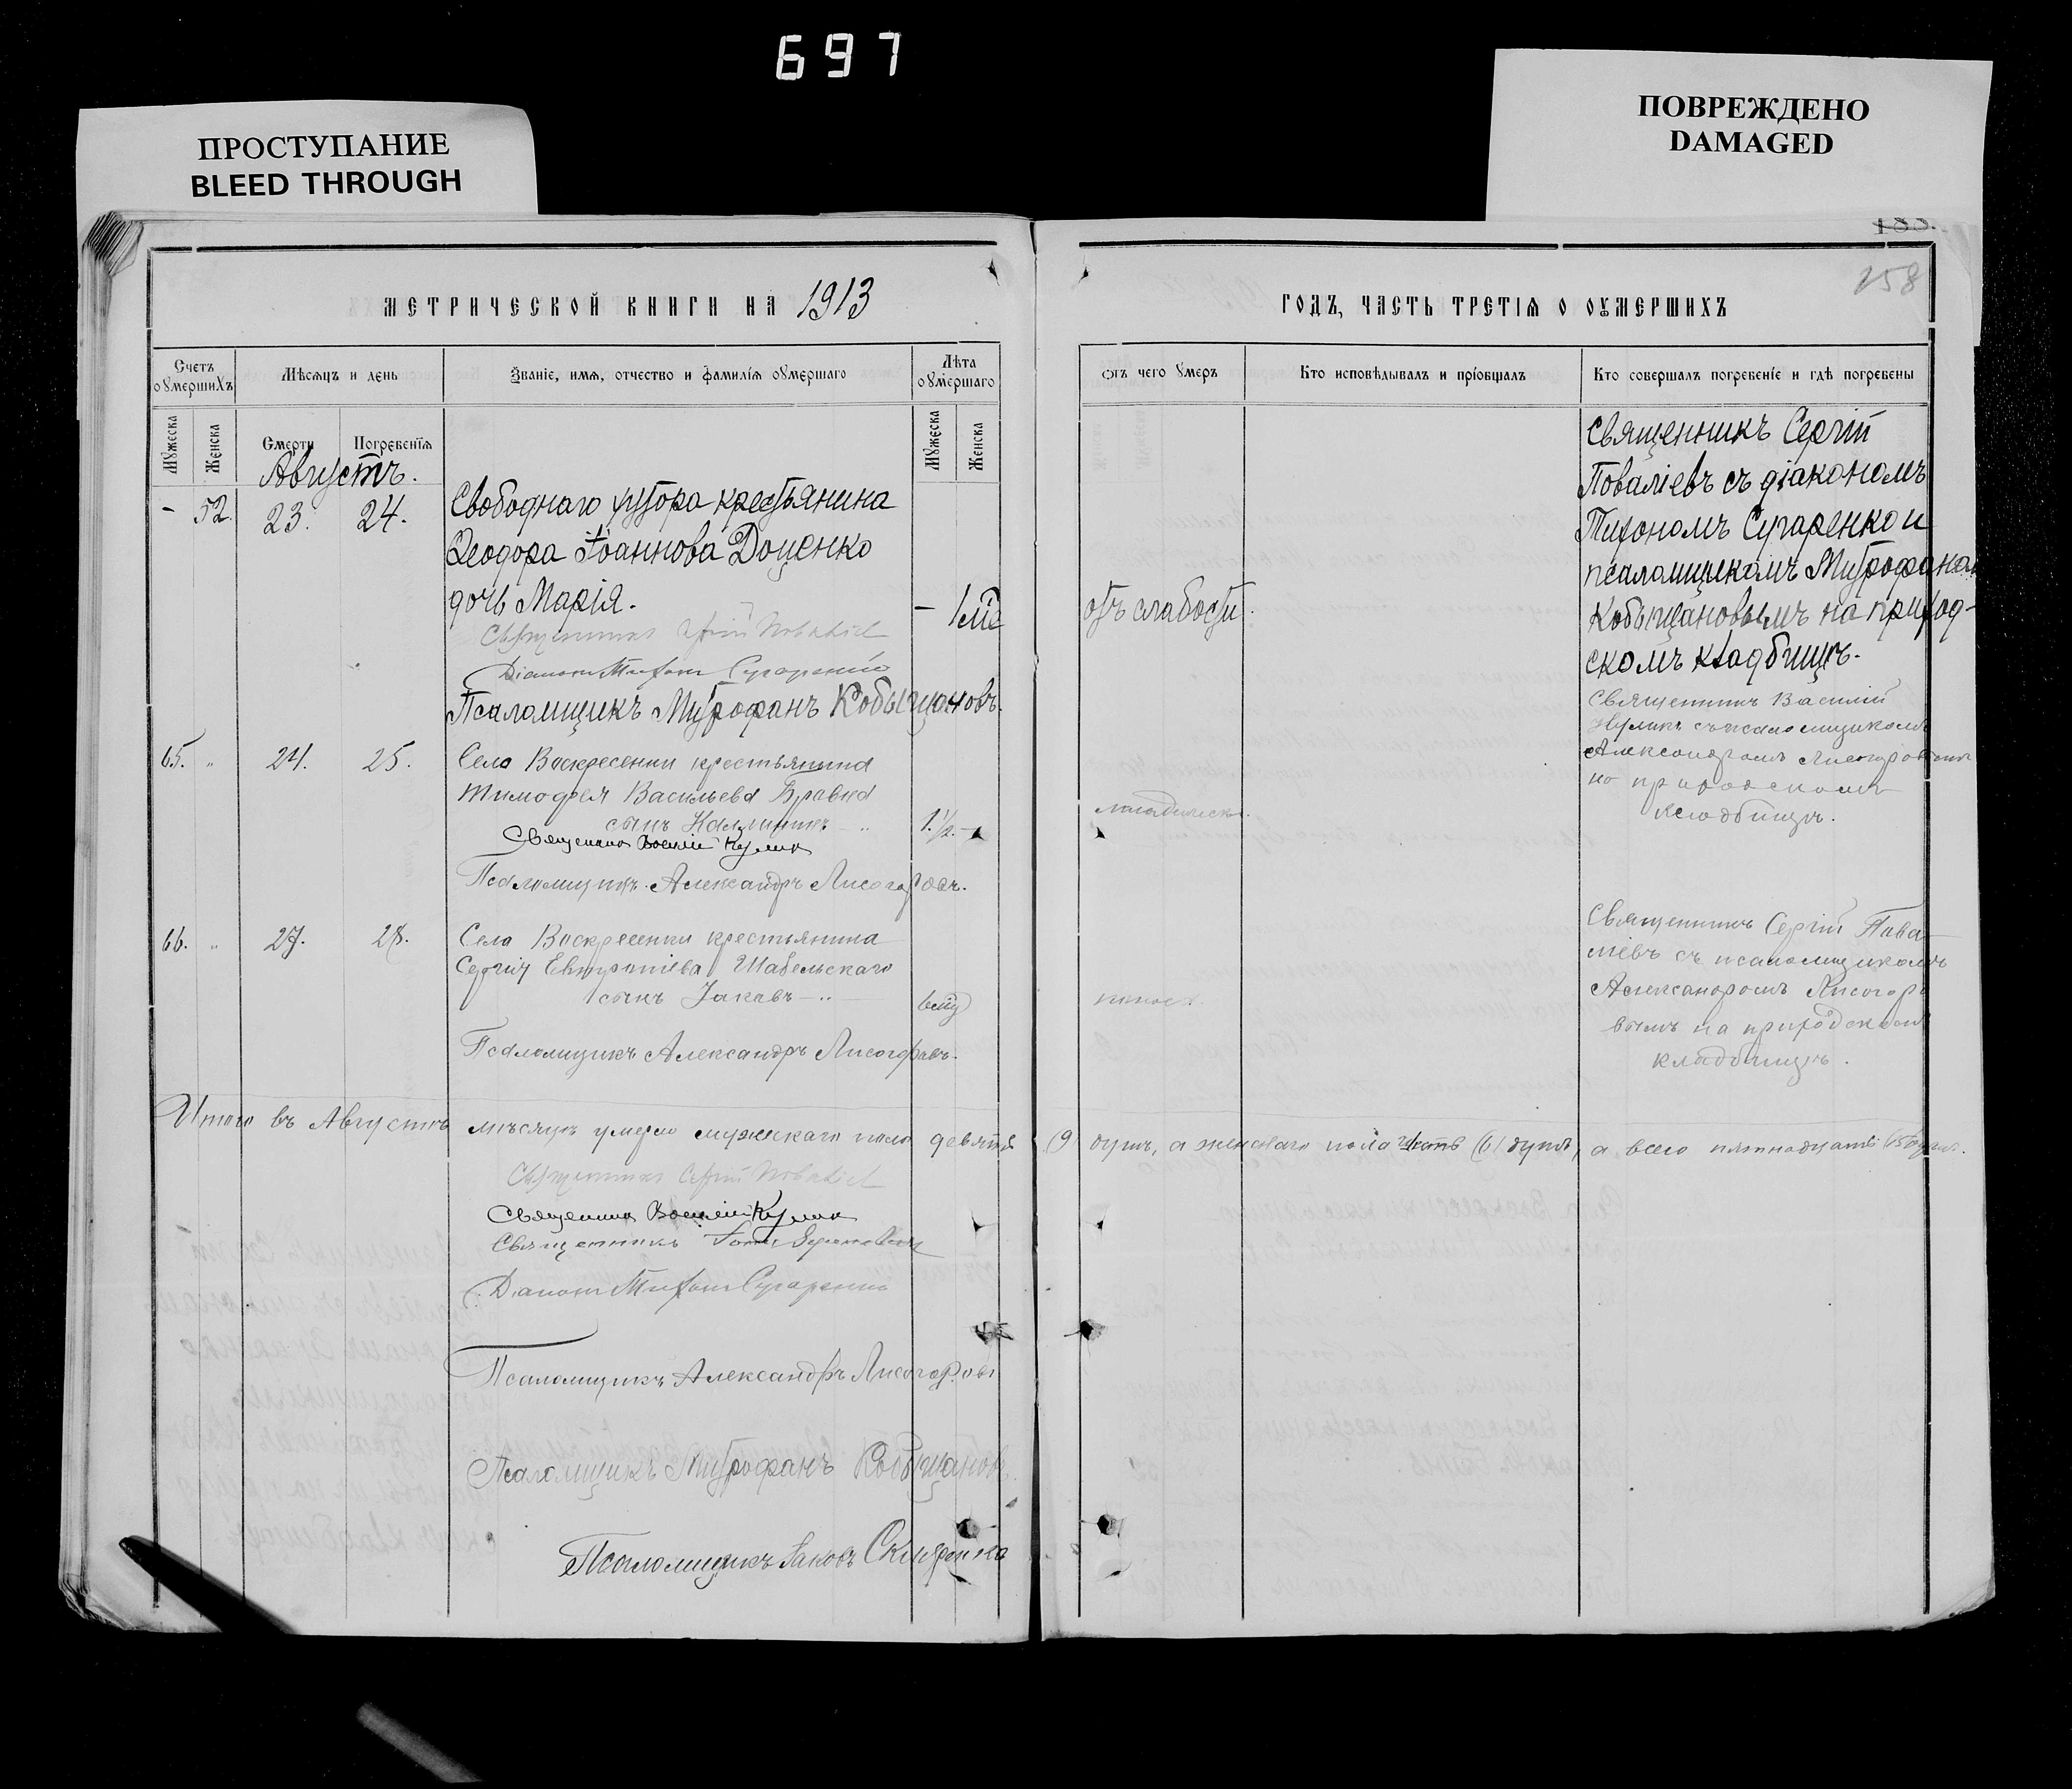 697
ПРОСТУПАНИЕ
BLEED THROUGH
ПОВРЕЖДЕНО
DAMAGED
188.
158
МЕТРИЧЕСКОЙ КНИГИ НА 1913
ГОДЪ, ЧАСТЬ ТРЕТІѦ О ОУМЕРШИХЪ
Счетъ оумершихъ
Мѣсѧцъ и день
Званіе, имѧ, отчество и фамиліѧ оумершаго
Лѣта оумершаго
Отъ чего умеръ
Кто исповѣдывалъ и пріобщалъ
Кто совершалъ погребеніе и гдѣ погребены
Мужеска
Женска
Смерти
Погребеніѧ
Мужеска
Женска
Августъ.
- 52. 23. 24.
Свободнаго хутора крестьянина
Ѳеодора Іоаннова Доценко
дочь Марія.
-
отъ слабости.
Священникъ Сергій
Поваліевъ съ діакономъ
Тихономъ Сухаренко и
псаломщикомъ Митрофаном
Кобыщановымъ на приход-
скомъ кладбищѣ.
Священникъ Сергій
Діаконъ Тихонъ Сухаренко
Псаломщикъ Митрофанъ Кобыщановъ.
65. „ 24. 25.
Села Воскресенки крестьянина
Тимофея Васильева
сынъ
1.½. -
Священникъ Василій Кулик
Псаломщикъ Александръ Лисогоровъ.
Священникъ Василій
Куликъ съ псаломщикомъ
Александромъ
на приходскомъ
кладбищѣ.
66. „ 27. 28.
Села Воскресенки крестьянина
Сергія Евтропіева Шабельскаго
сынъ Іаковъ - „
Псаломщикъ Александръ Лисогоровъ.
Священникъ Сергій Пова-
ліевъ съ псаломщикомъ
Александромъ Лисогоро
вымъ на приходском
кладбищѣ.
Итого въ Августѣ мѣсяцѣ умерло мужескаго пола девять (9) душъ, а женскаго пола шесть (6) душъ, а всего пятнадцать (15) душъ.
Священникъ Сергій
Священникъ Василій Кулик
Священникъ
Діаконъ Тихонъ Сухаренко
Псаломщикъ Александръ Лисогоровъ
Псаломщикъ Митрофанъ Кобыщановъ
Псаломщикъ Іаковъ